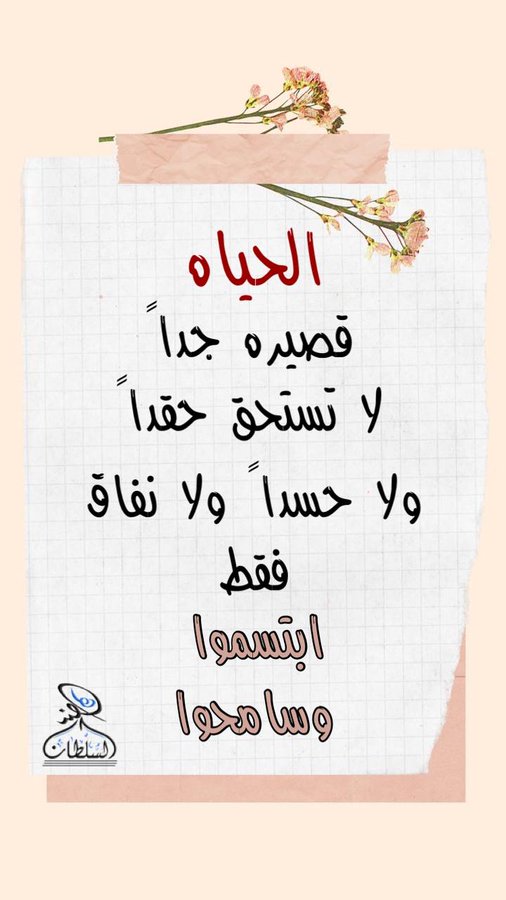 الحياه
قصيره جداً
لا تستحق حقداً
ولا حسداً ولا نفاق
فقط
ابتسموا
وسامحوا
السلطان